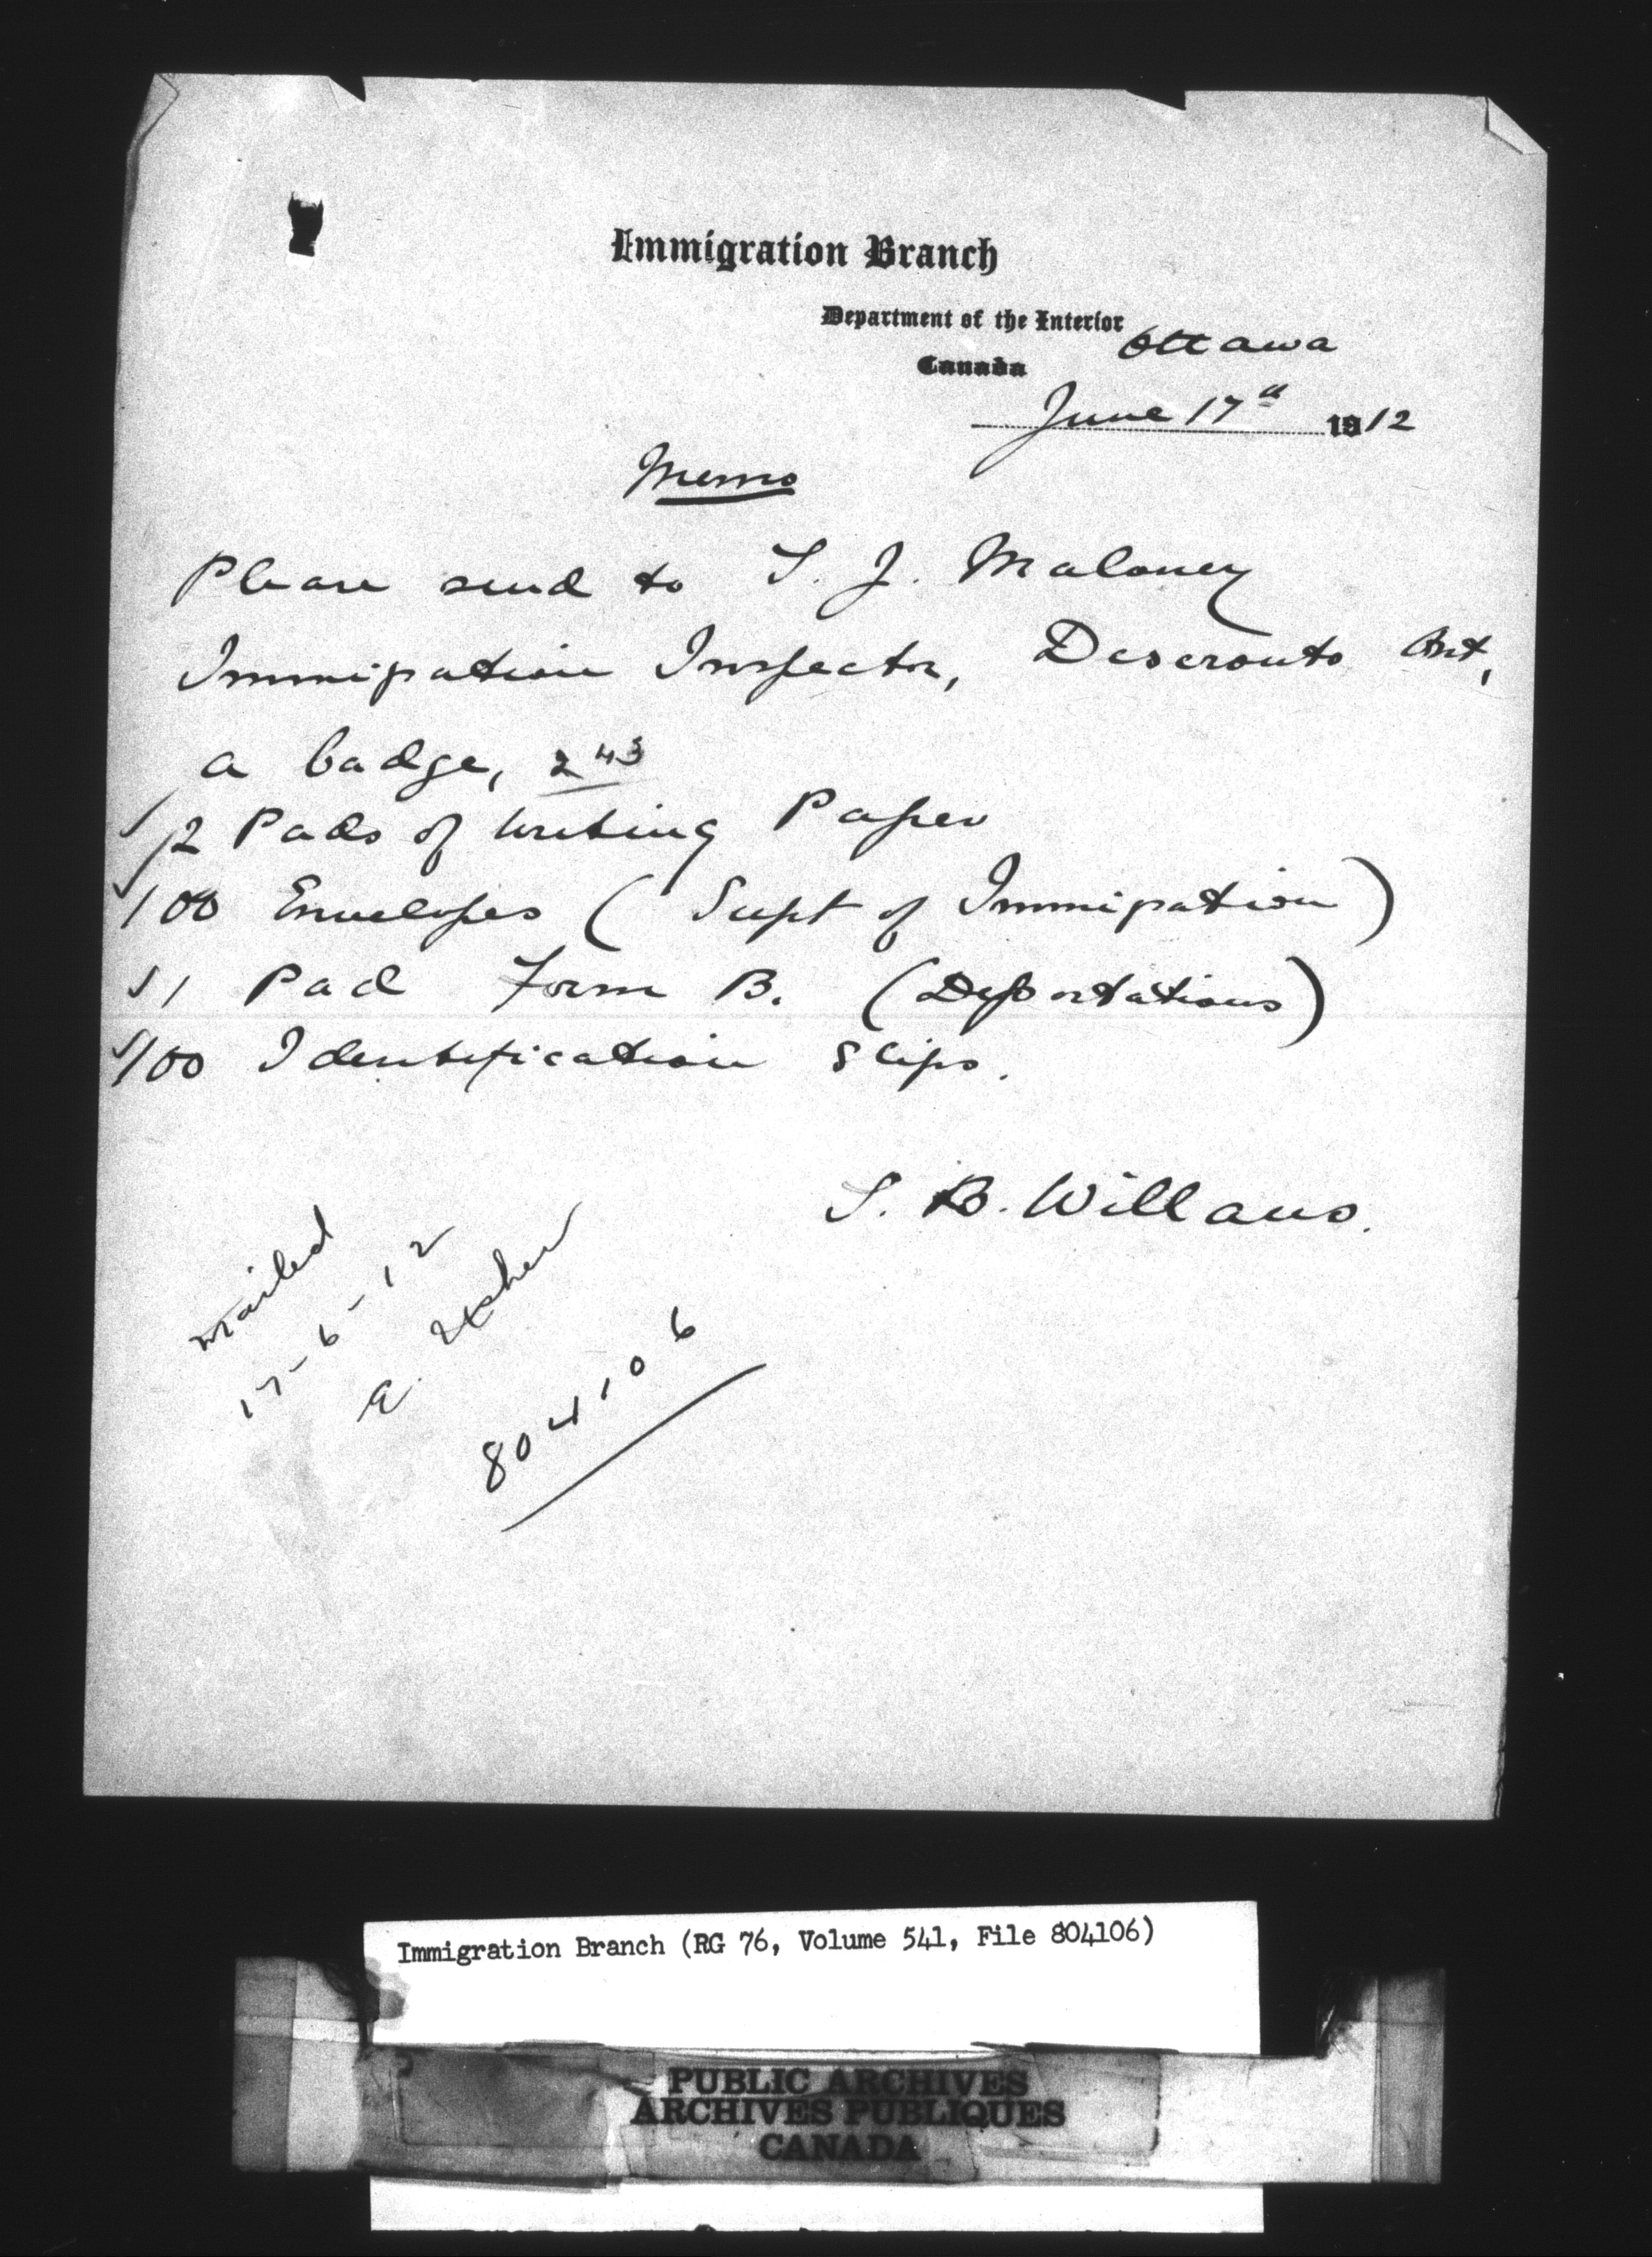 Immigration Branch
Department of the Interior
Ottawa
Canada
June 17th 1912
Memo
Please send to T. J. Maloney
Immigration Inspector, Deseronto Ont,
a badge, 243
✓ 2 Pads of Writing Paper
✓ 100 Envelopes (Supt of Immigration)
✓ 1 Pad Form B. (Deportations)
✓ 100 Identification Slips.
S. B. Willans.
mailed
17-6-12
804106
Immigration Branch (RG 76, Volume 541, File 804106)
PUBLIC ARCHIVES
ARCHIVES PUBLIQUES
CANADA